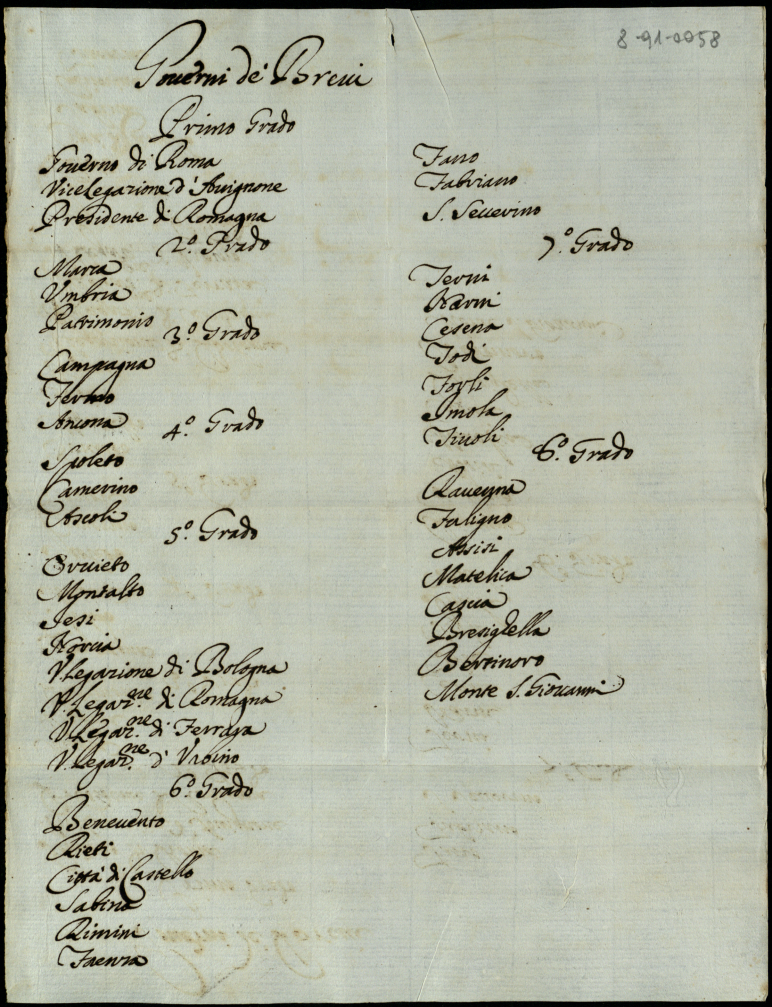 8-91-0058
Governi de' Brevi
Primo Grado
Governo di Roma
Vicelegazione d'Avignone
Presidente di Romagna
2.º Grado
Marca
Vmbria
Patrimonio
3.º Grado
Campagna
Fermo
Ancona
4.º Grado
Spoleto
Camerino
Ascoli
5.º Grado
Orvieto
Montalto
Jesi
Norcia
V.Legazione di Bologna
V.Legaz.ne di Romagna
V.Legaz.ne di Ferrara
V.Legaz.ne d'Vrbino
6.º Grado
Benevento
Rieti
Città di Castello
Sabina
Rimini
Faenza
Fano
Fabriano
S. Severino
7.º Grado
Terni
Narni
Cesena
Todi
Forlì
Imola
Tivoli
8.º Grado
Ravenna
Foligno
Assisi
Matelica
Cascia
Bresighella
Bertinoro
Monte S. Giovanni